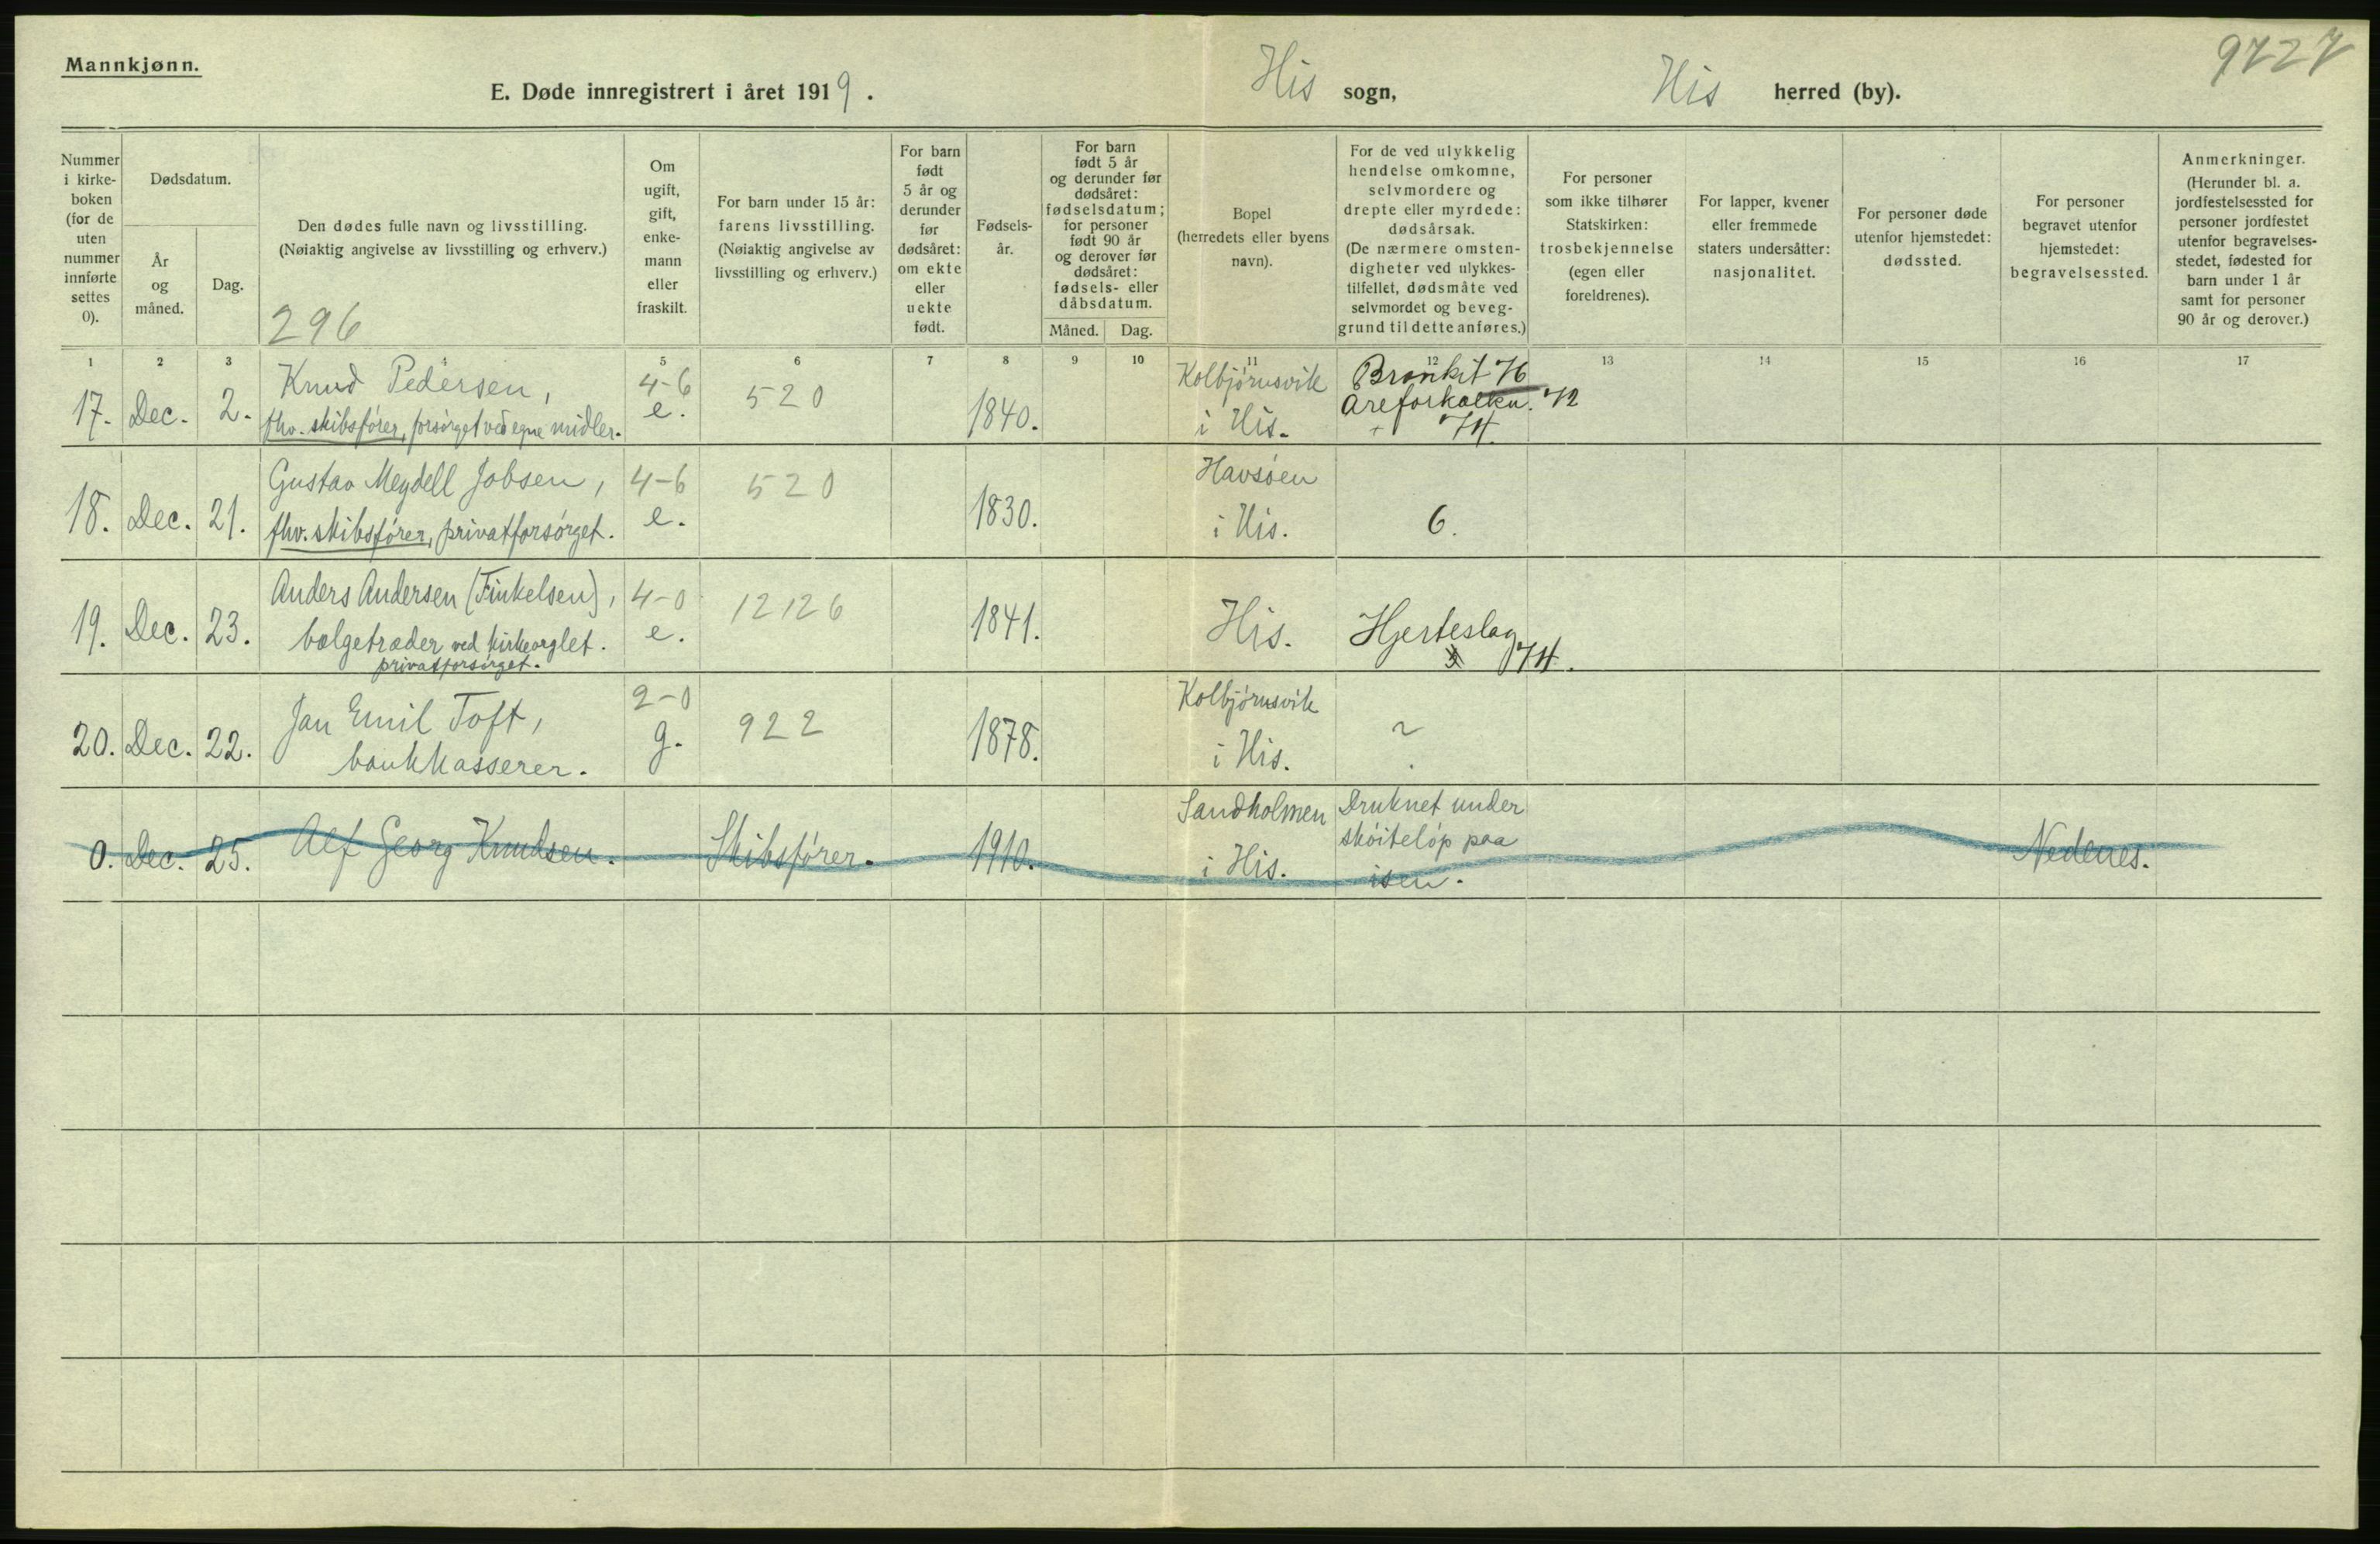 Mannkjønn.
9727
E. Døde innregistrert i året 1919.
His sogn,
His herred (by).
Nummer i kirke- boken (for de uten nummer innførte settes 0).
Dødsdatum.
År og måned.
Dag.
Den dødes fulle navn og livsstilling.
(Nøiaktig angivelse av livsstilling og erhverv.)
296
Om ugift, gift, enke- mann eller fraskilt.
For barn under 15 år: farens livsstilling. (Nøiaktig angivelse av livsstilling og erhverv.)
For barn født 5 år og derunder før dødsåret: om ekte eller uekte født.
Fødsels- år.
For barn født 5 år og derunder før dødsåret: fødselsdatum; for personer født 90 år og derover før dødsåret: fødsels- eller dåbsdatum.
Måned. Dag.
Bopel (herredets eller byens navn).
For de ved ulykkelig hendelse omkomne, selvmordere og drepte eller myrdede: dødsårsak. (De nærmere omsten- digheter ved ulykkes- tilfellet, dødsmåte ved selvmordet og beveg- grund til dette anføres.)
For personer som ikke tilhører Statskirken: trosbekjennelse (egen eller foreldrenes).
For lapper, kvener eller fremmede staters undersåtter: nasjonalitet.
For personer døde utenfor hjemstedet: dødssted.
For personer begravet utenfor hjemstedet: begravelsessted.
Anmerkninger. (Herunder bl. a. jordfestelsessted for personer jordfestet utenfor begravelses- stedet, fødested for barn under 1 år samt for personer 90 år og derover.)
1 2 3 4 5 6 7 8 9 10 11 12 13 14 15 16 17
17. Dec. 2. Knud Pedersen, 4-6 520 1840. Kolbjørnsvik Bronkit 76
fhv. skibsfører, forsørget ved egne midler. e. i His. Areforkalkn. 72
+ 74.
18. Dec. 21. Gustav Meydell Jobsen, 4-6 520 1830. Havsøen
fhv. skibsfører, privatforsørget. e. i His. 6.
19. Dec. 23. Anders Andersen (Finkelsen), 4-0 12126 1841. His. Hjerteslag
bælgetræder ved kirkeorglet. e. 74.
privatforsørget.
20. Dec. 22. Jan Emil Toft, 2-0 922 1878. Kolbjørnsvik ?
bankkasserer. g. i His.
0. Dec. 25. Alf Georg Knudsen. Skibsfører. 1910. Sandholmen Druknet under
i His. skøiteløp paa
isen. Nedenes.